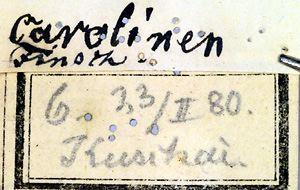 Carolinen
Finsch.
6. 3,3/II 80.
Kuschai.